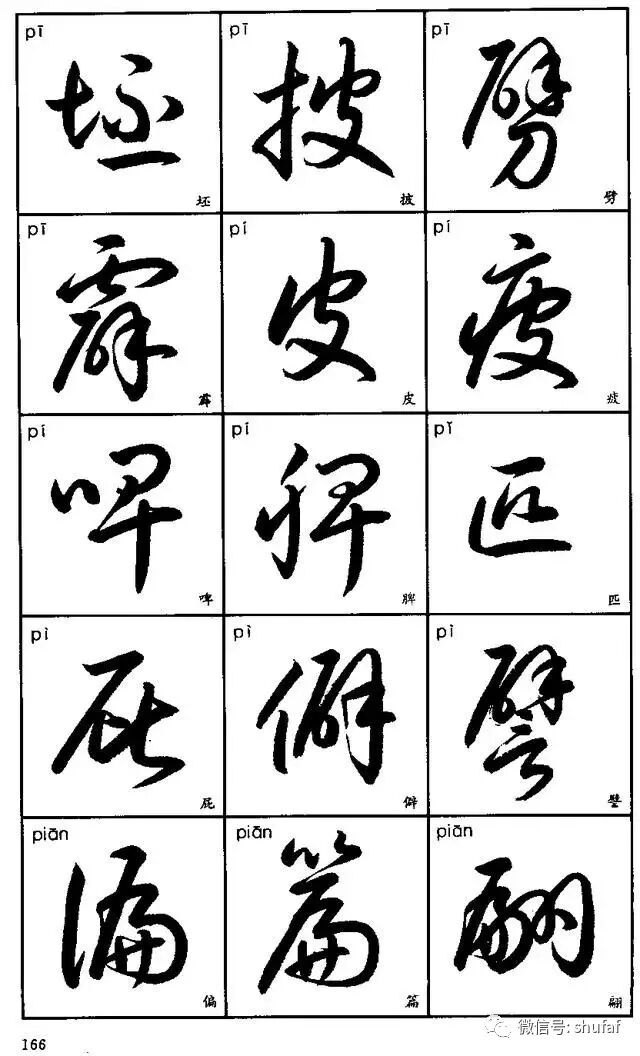 pī pī pī
坯 披 劈
坯 披 劈
pī pí pí
霹 皮 疲
霹 皮 疲
pí pí pǐ
啤 脾 匹
啤 脾 匹
pì pì pì
屁 僻 譬
屁 僻 譬
piān piān piān
偏 篇 翩
偏 篇 翩
166
微信号: shufaf